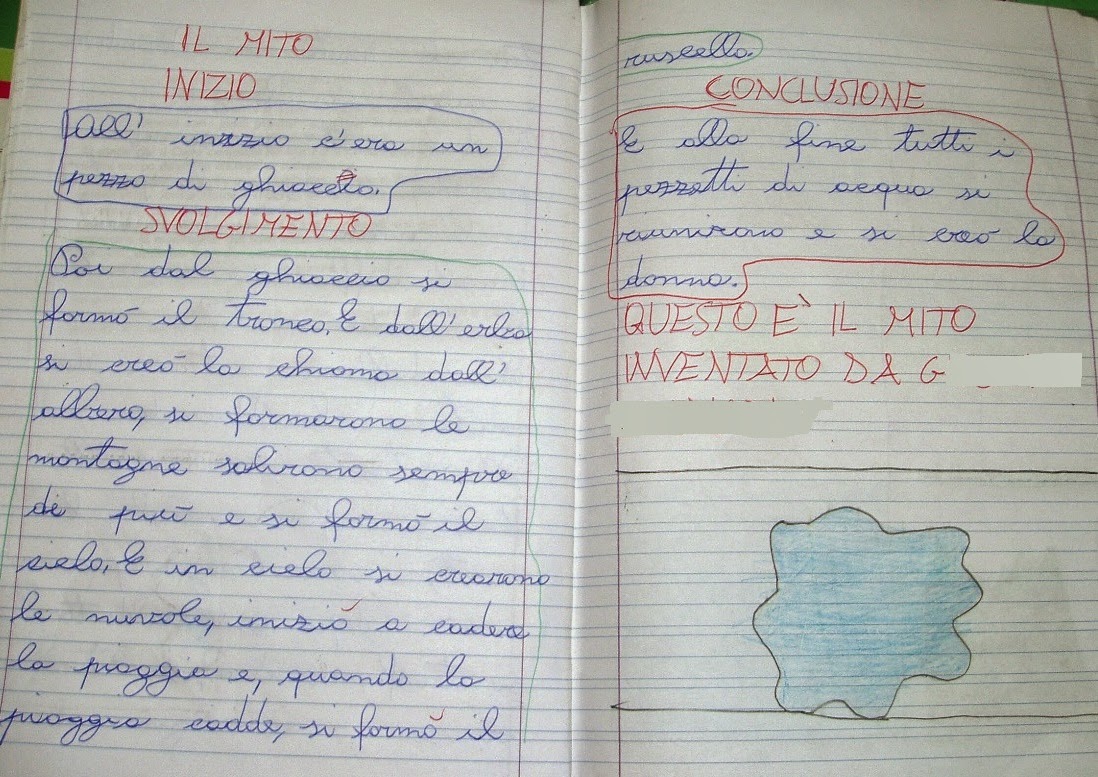 IL MITO
INIZIO
All' inizio c'era un
pezzo di ghiaccio.
SVOLGIMENTO
Poi dal ghiaccio si
formò il tronco. E dall'erba
si creò la chioma dall'
albero, si formarono le
montagne salirono sempre
di più e si formò il
cielo. E in cielo si crearono
le nuvole, iniziò a cadere
la pioggia e, quando la
pioggia cadde, si formò il
ruscello.
CONCLUSIONE
E alla fine tutti i
pezzetti di acqua si
riunirono e si creò la
donna.
QUESTO È IL MITO
INVENTATO DA G